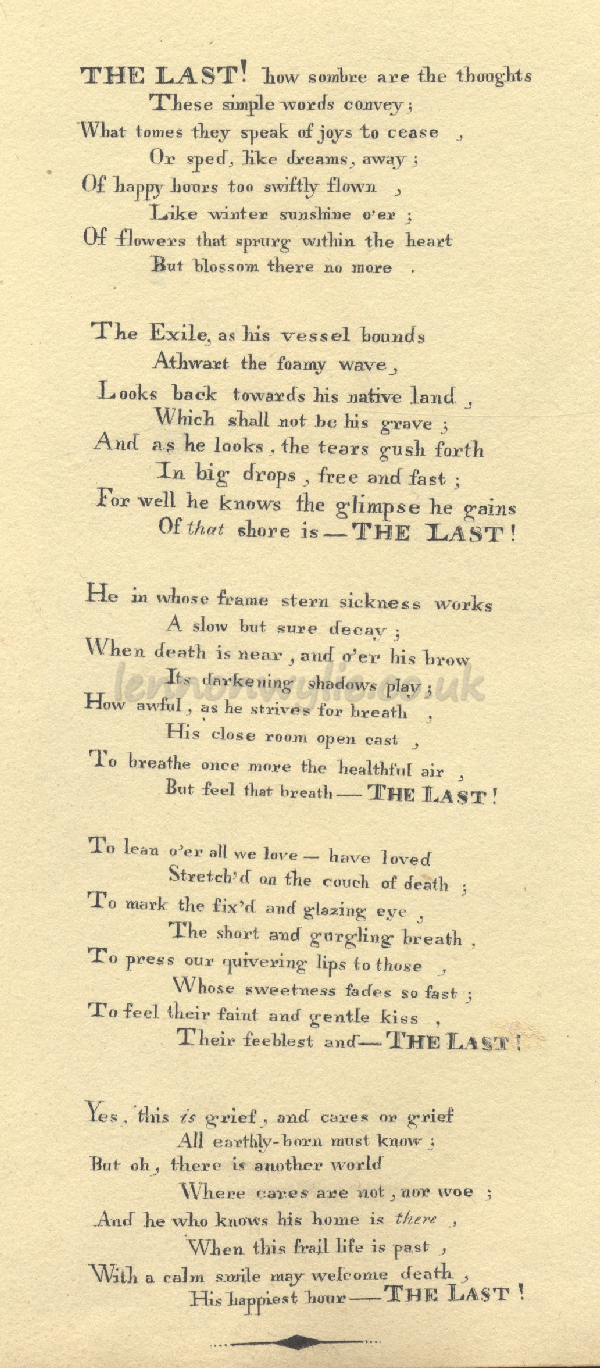 THE LAST! how sombre are the thoughts
These simple words convey;
What tomes they speak of joys to cease ,
Or sped, like dreams, away ;
Of happy hours too swiftly flown ,
Like winter sunshine o'er ;
Of flowers that sprurg within the heart
But blossom there no more .
The Exile, as his vessel bounds
Athwart the foamy wave,
Looks back towards his native land ,
Which shall not be his grave ;
And as he looks, the tears gush forth
In big drops, free and fast ;
For well he knows the glimpse he gains
Of that shore is — THE LAST !
He in whose frame stern sickness works
A slow but sure decay ;
When death is near, and o'er his brow
Its darkening shadows play ;
lennonwylie.co.uk
How awful, as he strives for breath ,
His close room open cast ,
To breathe once more the healthful air ,
But feel that breath — THE LAST !
To lean o'er all we love — have loved
Stretch'd on the couch of death ;
To mark the fix'd and glazing eye ,
The short and gurgling breath ,
To press our quivering lips to those ,
Whose sweetness fades so fast ;
To feel their faint and gentle kiss ,
Their feeblest and — THE LAST !
Yes, this is grief, and cares or grief
All earthly-born must know ;
But oh, there is another world
Where cares are not, nor woe ;
And he who knows his home is there ,
When this frail life is past ,
With a calm smile may welcome death ,
His happiest hour — THE LAST !